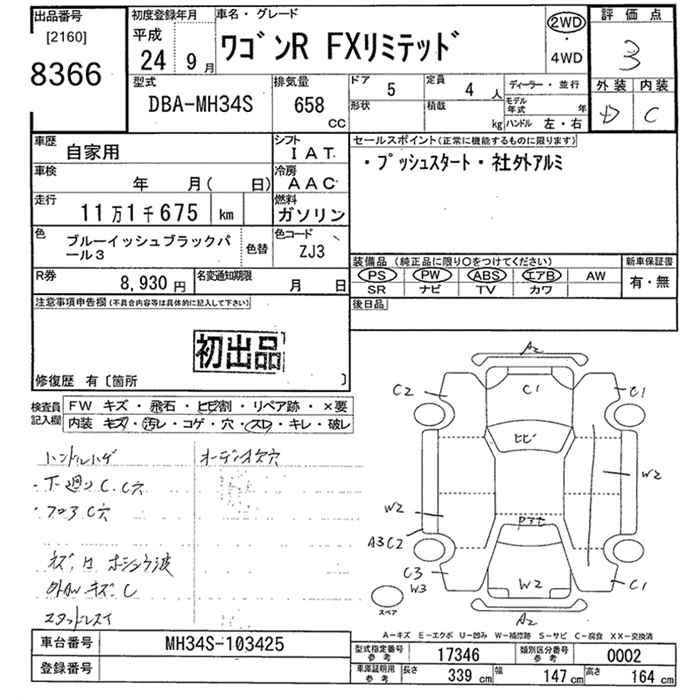 出品番号
[2160]
8366
初度登録年月
平成
24 9月
車名・グレード
ワゴンR FXリミテッド
2WD
・
4WD
評価点
3
外装 内装
D C
型式
DBA-MH34S
排気量
658
CC
ドア 5
形状
定員 4 人
積載 kg
ディーラー・並行
モデル年式 年
ハンドル 左・右
車歴 自家用
シフト IAT
車検 年 月( 日)
冷房 AAC
走行 11万1千675 km
燃料 ガソリン
色 ブルーイッシュブラックパール3
色替
色コード ZJ3
R券 8,930円
名変通知期限 月 日
セールスポイント(正常に機能するものに限ります)
・プッシュスタート・社外アルミ
装備品(純正品に限り○をつけてください)
新車保証書
PS PW ABS エアB AW
SR ナビ TV カワ
有・無
後日品
注意事項申告欄(不具合内容等は具体的に記入して下さい)
初出品
修復歴 有〔箇所 〕
検査員記入欄
FW キズ・飛石・ヒビ割・リペア跡・×要
内装 キズ・汚レ・コゲ・穴・スレ・キレ・破レ
ハンドルハゲ
オーディオ欠穴
・下廻りC.C穴
・フロアC穴
外観キズC
スタッドレス
A2
C2 C1 C1
ヒビ
W2
W2
A3C2
C3
W3
W2 C1
A2
スペア
A-キズ E-エクボ U-凹み W-補修跡 S-サビ C-腐食 XX-交換済
車台番号 MH34S-103425
登録番号
型式指定番号参考 17346
類別区分番号参考 0002
車庫証明用参考 長さ 339cm 幅 147cm 高さ 164cm